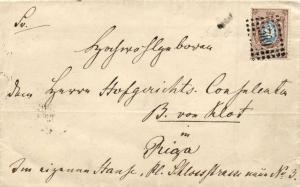 Sr.
Hochwohlgeboren
dem Herrn Hofgerichts-Consulenten
B. von Klot
in
Riga
Im eigenen Hause, kl. Schlossstrasse No 3.